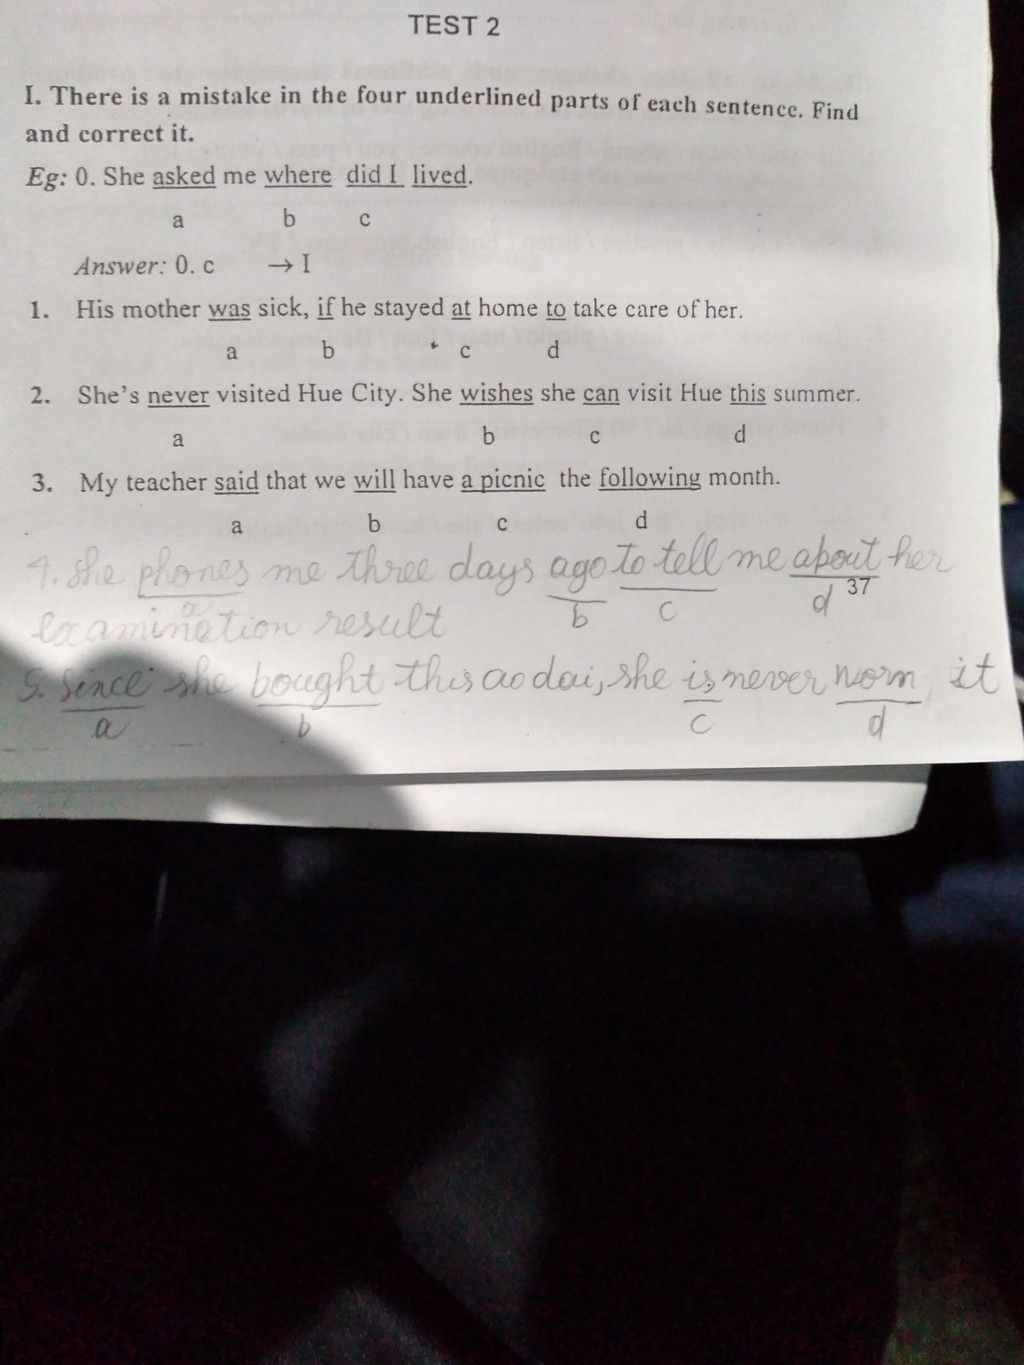 TEST 2
I. There is a mistake in the four underlined parts of each sentence. Find
and correct it.
Eg: 0. She asked me where did I lived.
a b c
Answer: 0. c → I
1. His mother was sick, if he stayed at home to take care of her.
a b c d
2. She's never visited Hue City. She wishes she can visit Hue this summer.
a b c d
3. My teacher said that we will have a picnic the following month.
a b c d
4. She phones me three days ago to tell me about her
a b c d 37
examination result
5. Since she bought this ao dai, she is never worn it
a b c d